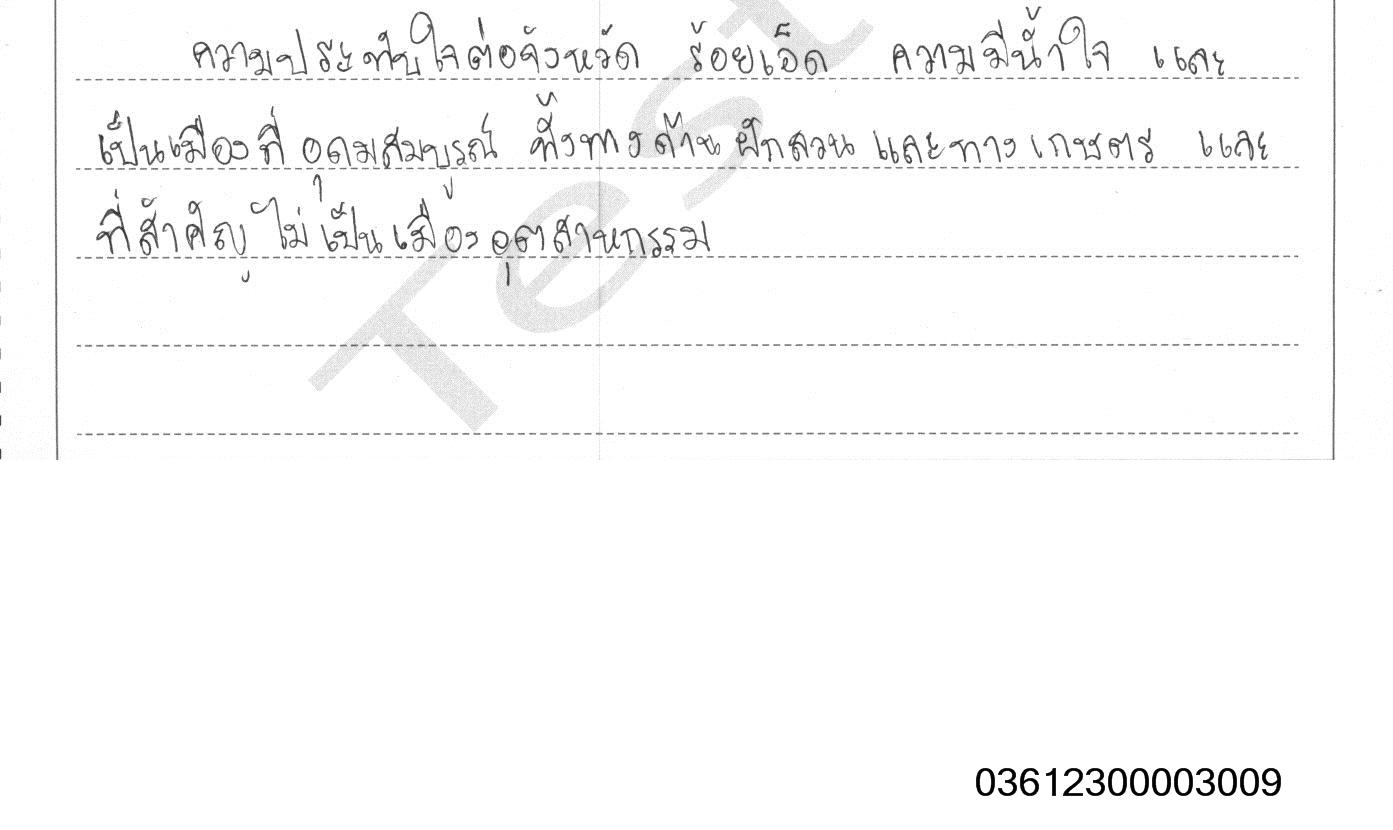 ความประทับใจต่อจังหวัด ร้อยเอ็ด ความมีน้ำใจ และ
เป็นเมืองที่ อุดมสมบูรณ์ ทั้งทางด้าน พืกสวน และทาง เกษตร และ
ที่สำคัญ ไม่เป็นเมืองอุตสาหกรรม
Test
03612300003009